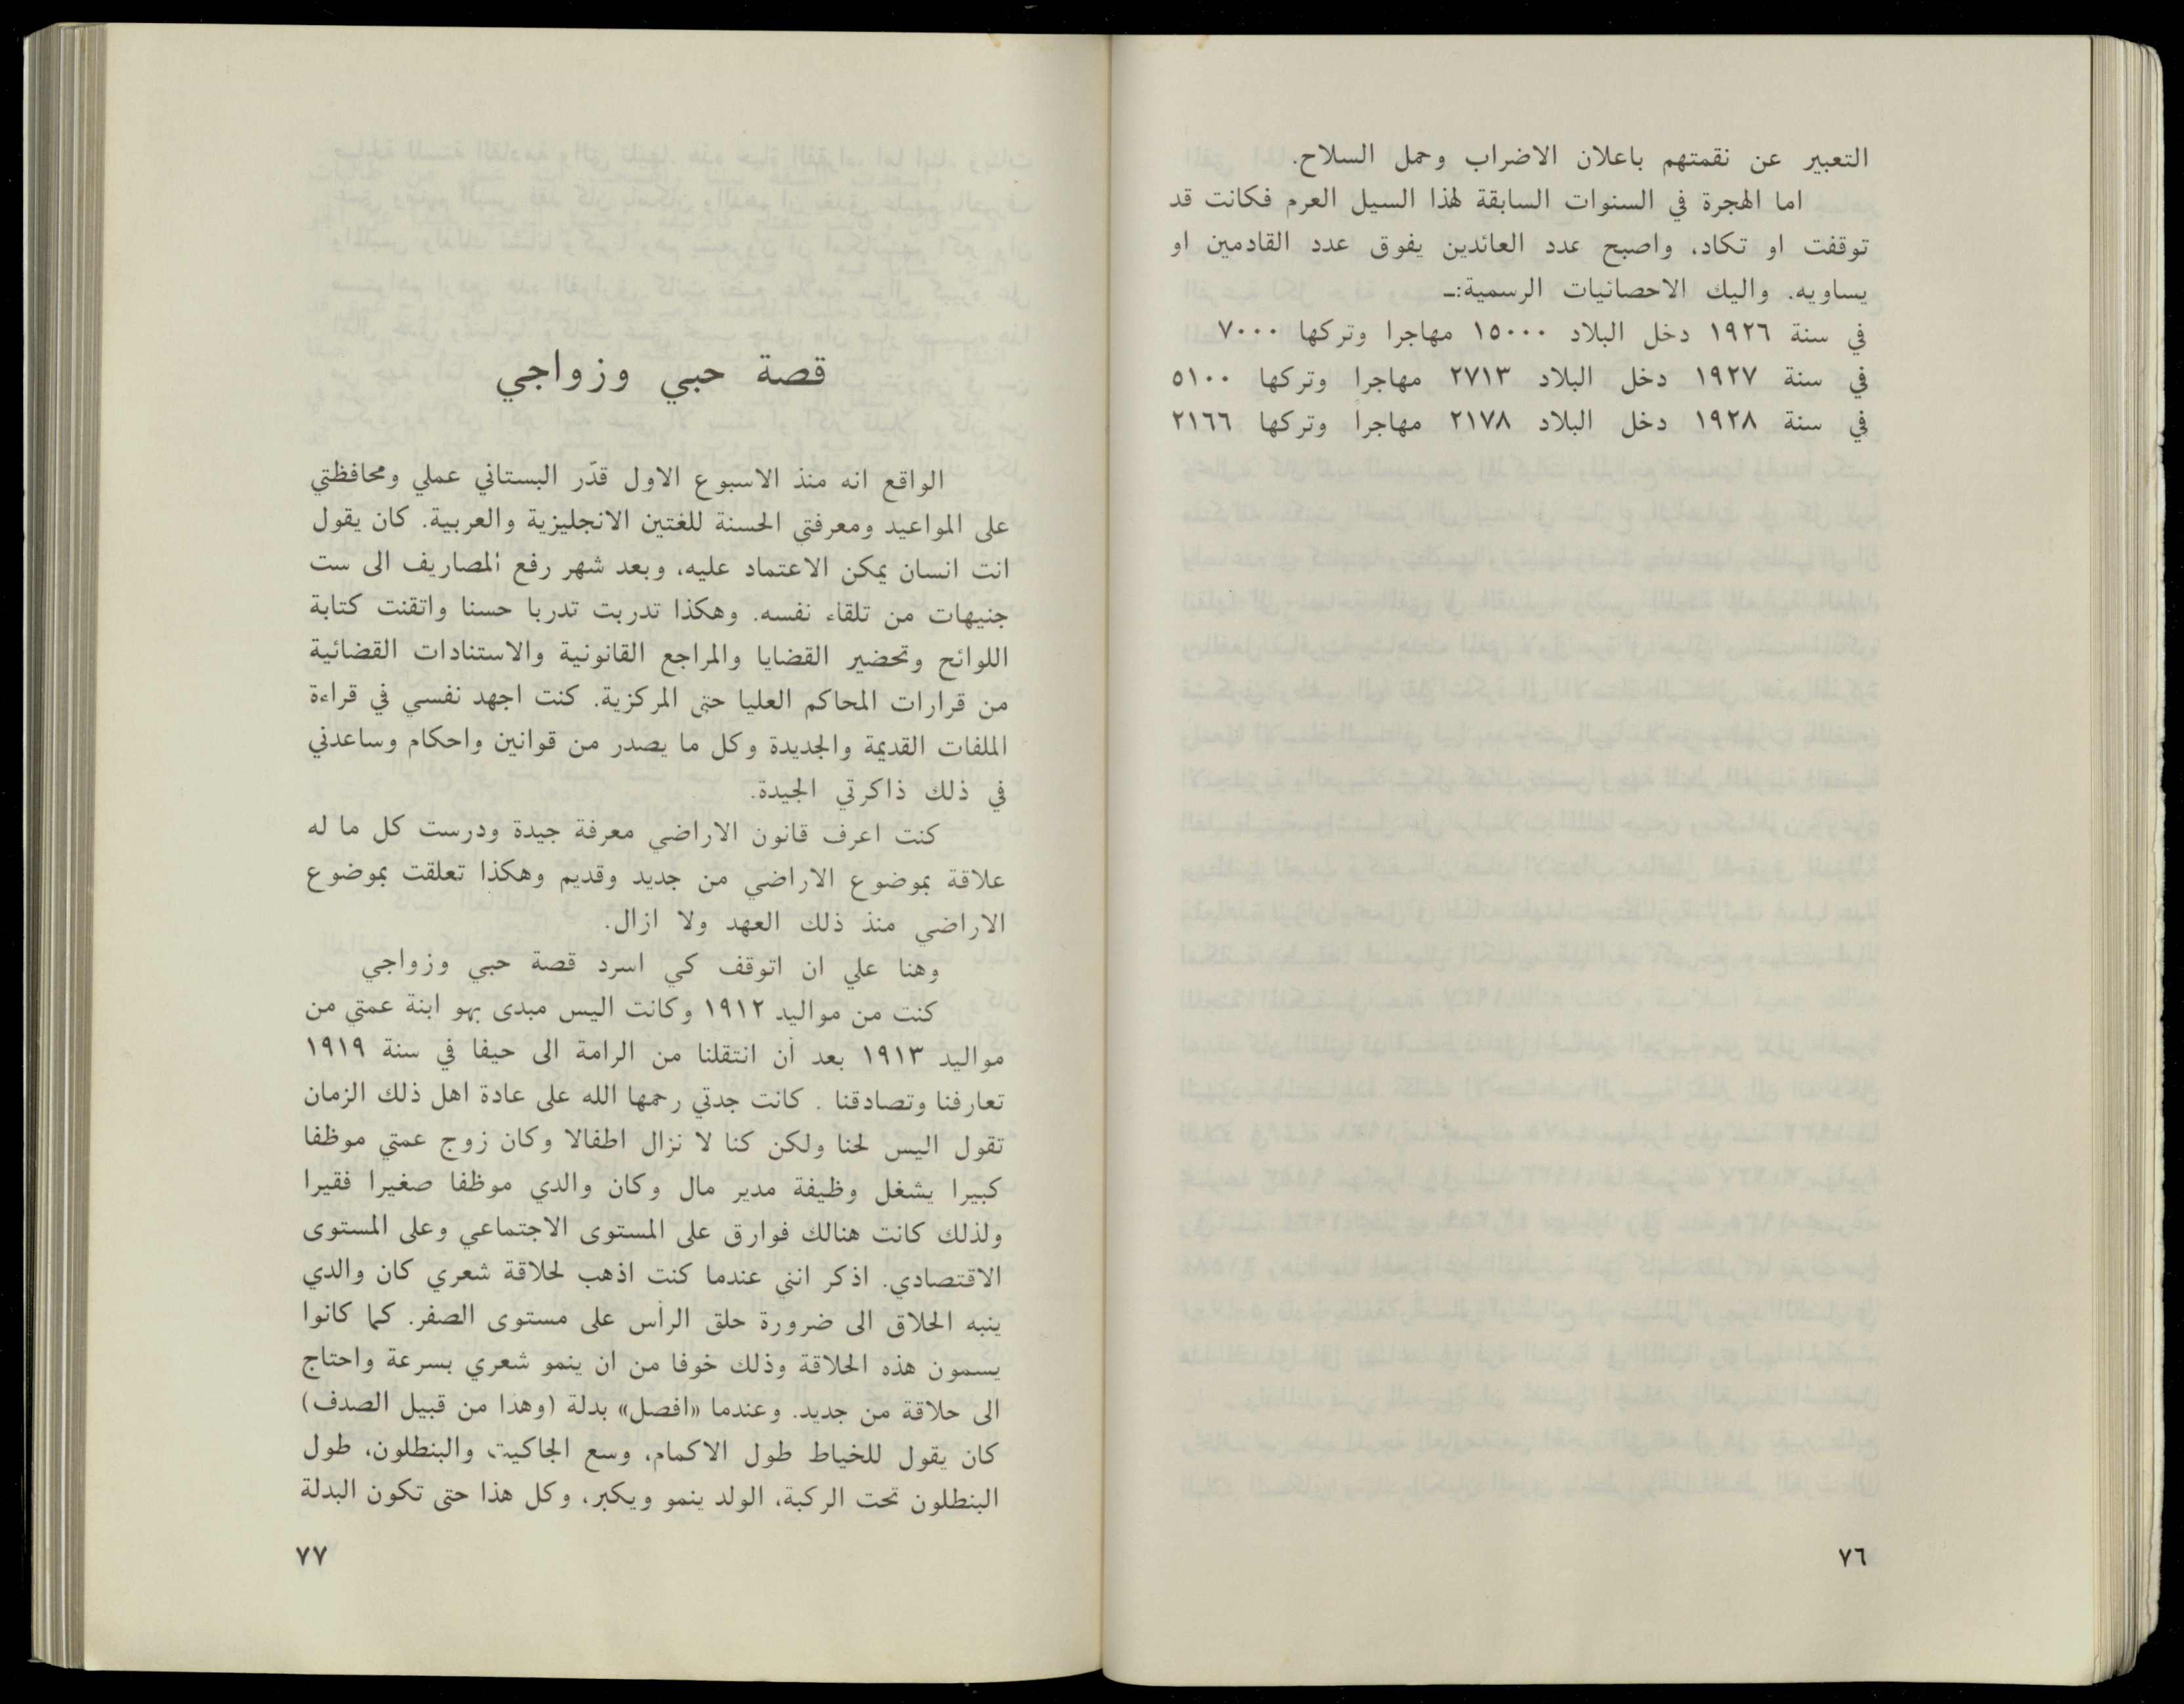 التعبير عن نقمتهم باعلان الاضراب وحمل السلاح.
اما الهجرة في السنوات السابقة لهذا السيل العرم فكانت قد
توقفت او تكاد، واصبح عدد العائدين يفوق عدد القادمين او
يساويه. واليك الاحصائيات الرسمية:ـ
في سنة ١٩٢٦ دخل البلاد ١٥٠٠٠ مهاجرا وتركها ٧٠٠٠
في سنة ١٩٢٧ دخل البلاد ٢٧١٣ مهاجرا وتركها ٥١٠٠
في سنة ١٩٢٨ دخل البلاد ٢١٧٨ مهاجراً وتركها ٢١٦٦
٧٦
قصة حبي وزواجي
الواقع انه منذ الاسبوع الاول قدّر البستاني عملي ومحافظتي
على المواعيد ومعرفتي الحسنة للغتين الانجليزية والعربية. كان يقول
انت انسان يمكن الاعتماد عليه، وبعد شهر رفع المصاريف الى ست
جنيهات من تلقاء نفسه. وهكذا تدربت تدربا حسنا واتقنت كتابة
اللوائح وتحضير القضايا والمراجع القانونية والاستنادات القضائية
من قرارات المحاكم العليا حتى المركزية. كنت اجهد نفسي في قراءة
الملفات القديمة والجديدة وكل ما يصدر من قوانين واحكام وساعدني
في ذلك ذاكرتي الجيدة.
كنت اعرف قانون الاراضي معرفة جيدة ودرست كل ما له
علاقة بموضوع الاراضي من جديد وقديم وهكذا تعلقت بموضوع
الاراضي منذ ذلك العهد ولا ازال.
وهنا علي ان اتوقف كي اسرد قصة حبي وزواجي
كنت من مواليد ١٩١٢ وكانت اليس مبدى بهو ابنة عمتي من
مواليد ١٩١٣ بعد أن انتقلنا من الرامة الى حيفا في سنة ١٩١٩
تعارفنا وتصادقنا . كانت جدتي رحمها الله على عادة اهل ذلك الزمان
تقول اليس لحنا ولكن كنا لا نزال اطفالا وكان زوج عمتي موظفا
كبيرا يشغل وظيفة مدير مال وكان والدي موظفا صغيرا فقيرا
ولذلك كانت هنالك فوارق على المستوى الاجتماعي وعلى المستوى
الاقتصادي. اذكر انني عندما كنت اذهب لحلاقة شعري كان والدي
ينبه الحلاق الى ضرورة حلق الرأس على مستوى الصفر. كما كانوا
يسمون هذه الحلاقة وذلك خوفا من ان ينمو شعري بسرعة واحتاج
الى حلاقة من جديد. وعندما «افصل» بدلة (وهذا من قبيل الصدف)
كان يقول للخياط طول الاكمام، وسع الجاكيت والبنطلون، طول
البنطلون تحت الركبة، الولد ينمو ويكبر، وكل هذا حتى تكون البدلة
٧٧